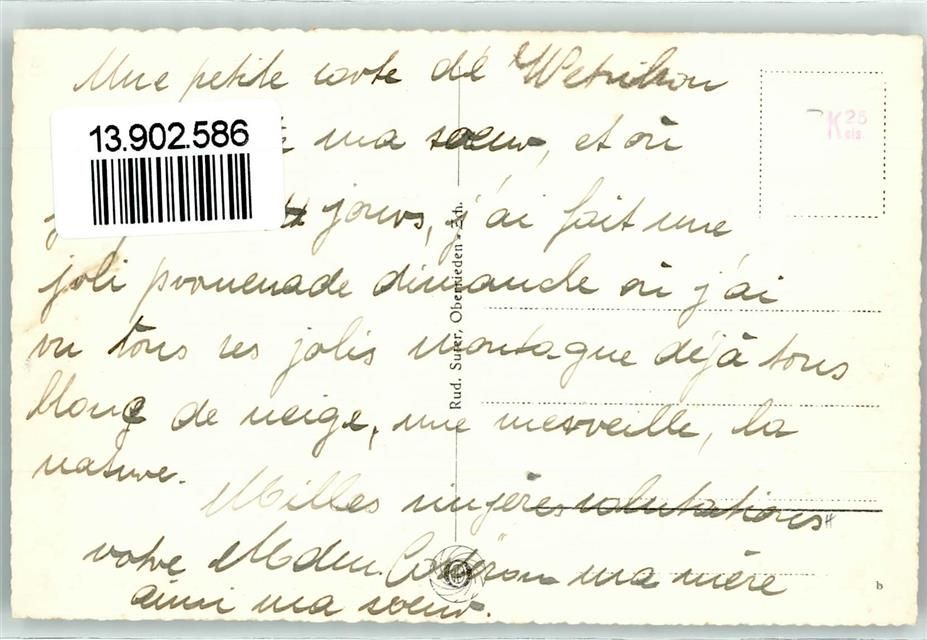 Une petite carte de Wetzikon
13.902.586
ma soeur, et où
jours, j'ai fait une
joli promenade dimanche où j'ai
vu tous ces jolis montague déjà tous
blanc de neige, une merveille, la
nature.
Milles sinjères salutations
votre Mdm. ma mère
ainsi ma soeur.
K 25 cts.
Rud. Suter, Oberrieden - Zch.
b